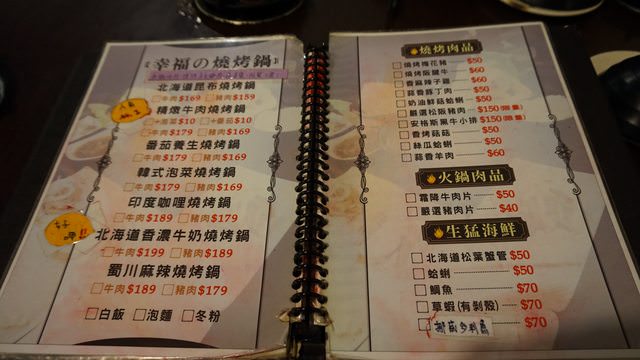 幸福の燒烤鍋
北海道昆布燒烤鍋
牛肉$169 豬肉$159
精燉牛肉燒烤鍋
$10 +番茄$10
牛肉$179 豬肉$169
番茄養生燒烤鍋
牛肉$179 豬肉$169
韓式泡菜燒烤鍋
牛肉$179 豬肉$169
印度咖哩燒烤鍋
牛肉$189 豬肉$179
好喝!!
北海道香濃牛奶燒烤鍋
牛肉$199 豬肉$189
蜀川麻辣燒烤鍋
牛肉$189 豬肉$179
白飯 泡麵 冬粉
燒烤肉品
燒烤梅花豬 $50
燒烤阪腱牛 $60
香麻辣子雞 $60
蒜香豬丁肉 $50
奶油鮮菇蛤蜊 $50
嚴選松阪豬肉 $150(限量)
安格斯黑牛小排 $150(限量)
香烤菇菇 $50
絲瓜蛤蜊 $50
蒜香羊肉 $60
火鍋肉品
霜降牛肉片 $50
嚴選豬肉片 $40
生猛海鮮
北海道松葉蟹管 $50
蛤蜊 $50
鯛魚 $70
草蝦(有剝殼) $70
$70